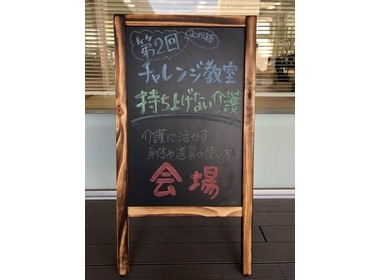 第2回
チャレンジ教室
持ち上げない介護
介護に活かす
身体や道具の使い方
会場